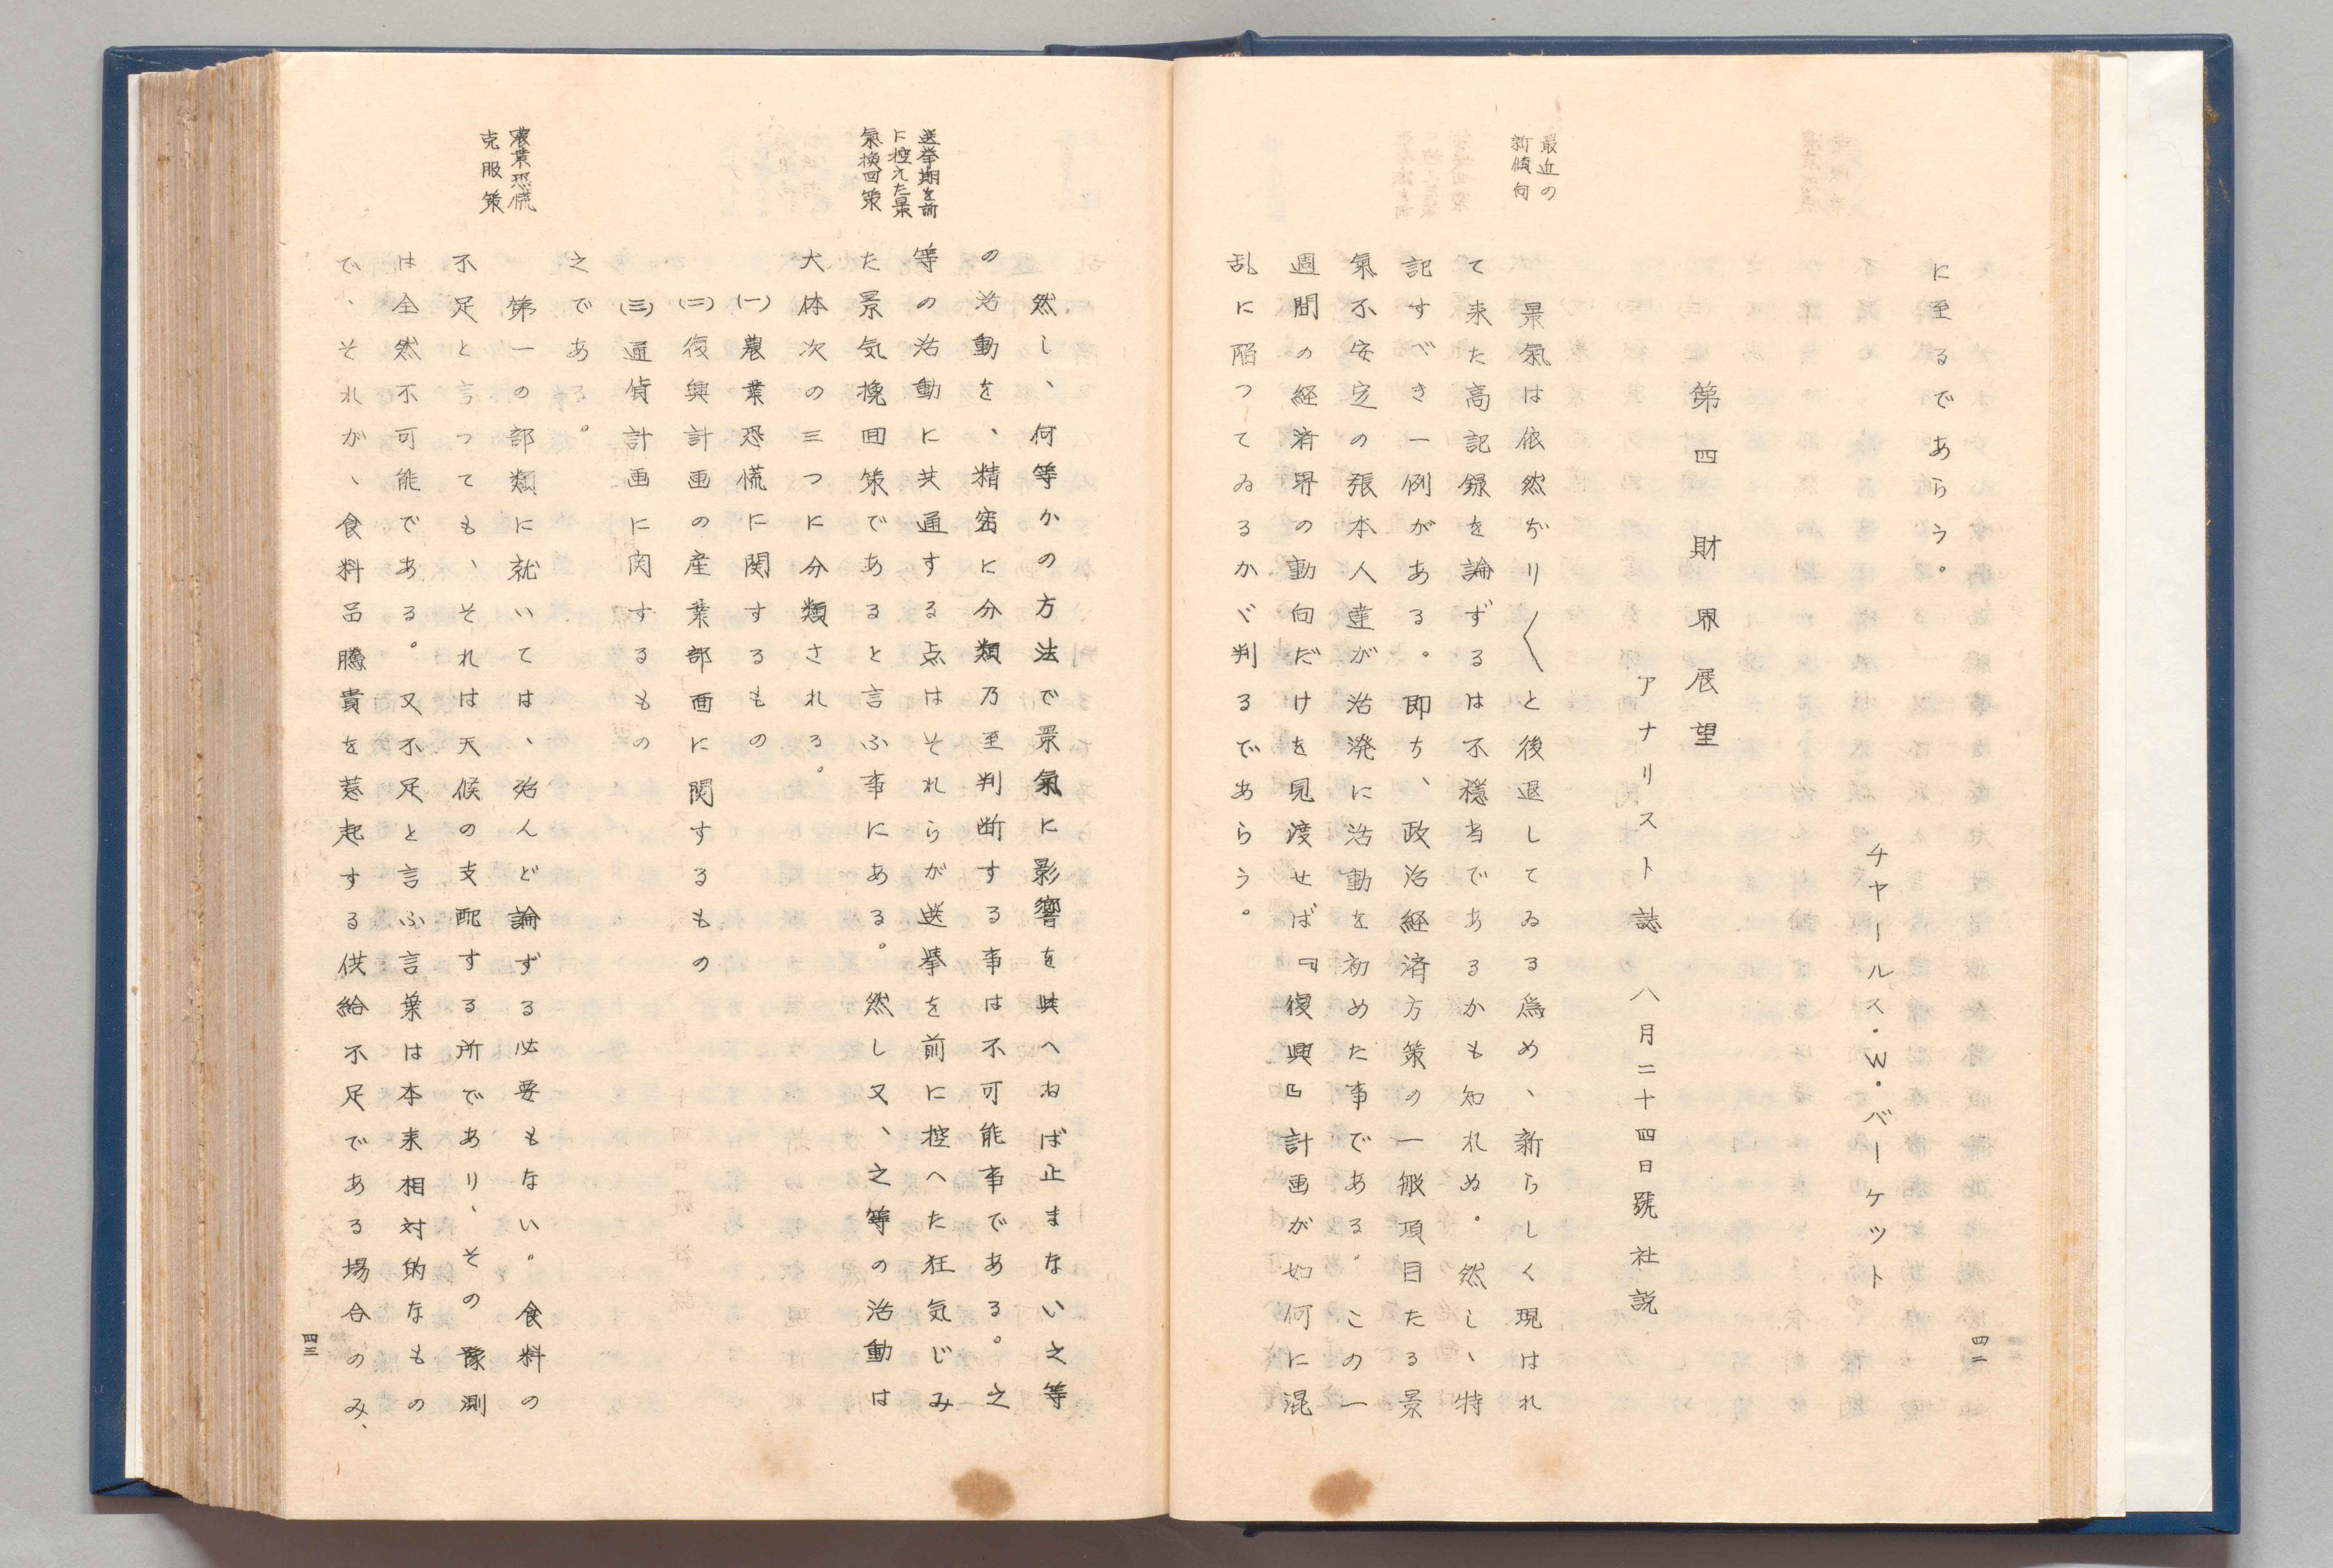 に至るであらう。
チャールス・W・バーケット
第四 財界展望
アナリスト誌 八月二十四日號社説
最近の
新傾向
景氣は依然ぢり〱と後退してゐる爲め、新らしく現はれ
て来た高記録を論ずるは不穏当であるかも知れぬ。然し、特
記すべき一例がある。即ち、政治経済方策の一般項目たる景
氣不安定の張本人達が活溌に活動を初めた事である。この一
週間の経済界の動向だけを見渡せば『復興』計画が如何に混
乱に陥つてゐるかゞ判るであらう。
四二
然し、何等かの方法で景氣に影響を與へねば止まない之等
の活動を、精密に分類乃至判断する事は不可能事である。之
選挙期を前
に控えた景
氣挽回策
等の活動に共通する点はそれらが選挙を前に控へた狂気じみ
た景気挽回策であると言ふ事にある。然し又、之等の活動は
大体次の三つに分類される。
(一)農業恐慌に関するもの
(二)復興計画の産業部面に関するもの
(三)通貨計画に関するもの
之である。
農業恐慌
克服策
第一の部類に就いては、殆んど論ずる必要もない。食料の
不足と言つても、それは天候の支配する所であり、その豫測
は全然不可能である。又不足と言ふ言葉は本来相対的なもの
で、それが、食料品騰貴を惹起する供給不足である場合のみ、
四三